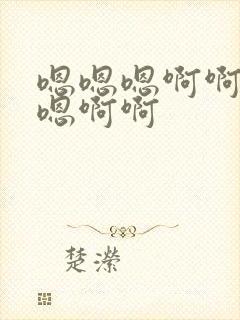 嗯嗯嗯啊啊
嗯啊啊
楚濴